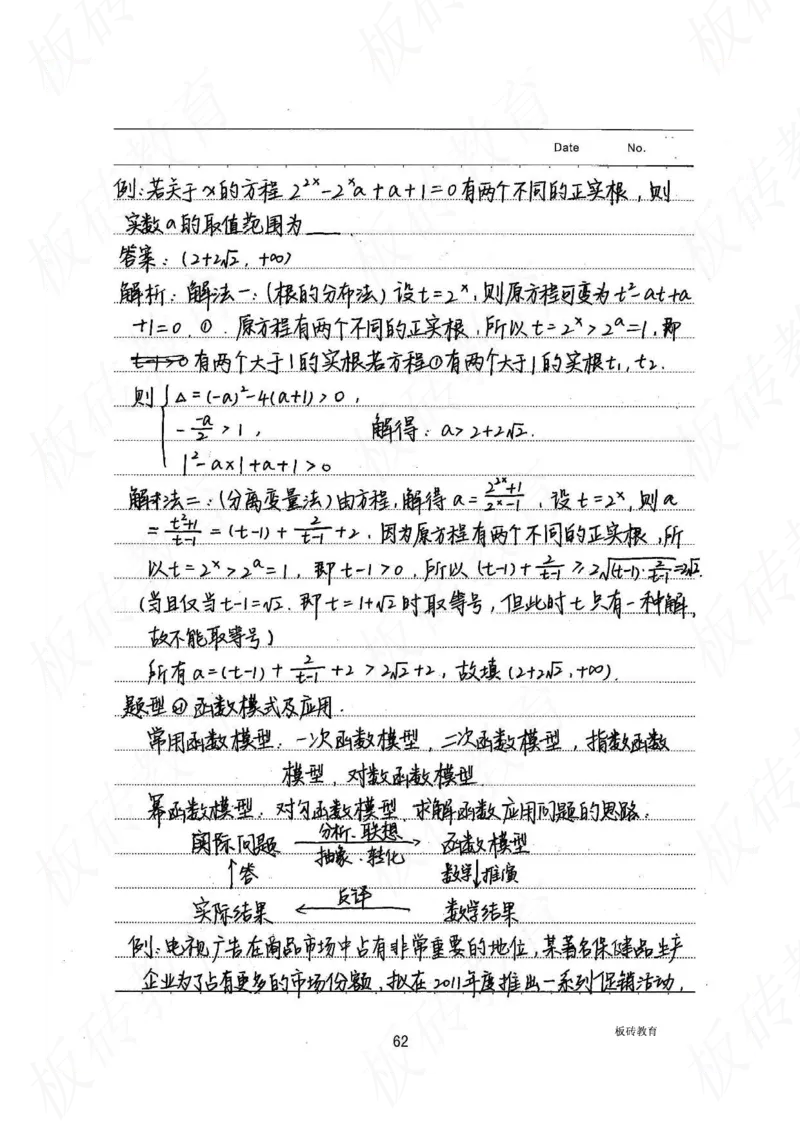 Date No.
例:若关于x的方程 2^{2x}-2^x a+a+1=0有两个不同的正实根,则
实数a的取值范围为____.
答案:(2+2√2,+∞)
解析:解法一:(根的分布法)设t=2^x,则原方程可变为t²-at+a
+1=0.①.原方程有两个不同的正实根,所以t=2^x>2^a=1,即
t-1>0有两个大于1的实根若方程①有两个大于1的实根t₁,t₂.
则 { Δ=(-a)²-4(a+1)>0,
- -a/2 >1, 解得:a>2+2√2.
1²-a×1+a+1>0
解法二:(分离变量法)由方程,解得a=(2^{2x}+1)/(2^x-1),设t=2^x,则a
=(t²+1)/(t-1)=(t-1)+2/(t-1)+2,因为原方程有两个不同的正实根,所
以t=2^x>2^a=1,即t-1>0,所以(t-1)+2/(t-1)≥2√((t-1)·2/(t-1))=2√2.
(当且仅当t-1=√2.即t=1+√2时取等号,但此时t只有一种解,
故不能取等号)
所有a=(t-1)+2/(t-1)+2>2√2+2,故填(2+2√2,+∞).
题型④函数模式及应用.
常用函数模型:一次函数模型,二次函数模型,指数函数
模型,对数函数模型
幂函数模型.对勾函数模型.求解函数应用问题的思路:
实际问题 分析.联想 函数模型
抽象.转化
↑答 数学↓推演
实际结果 ← 反译 数学结果
例:电视广告在商品市场中占有非常重要的地位,某著名保健品生产
企业为了占有更多的市场份额,拟在2011年度推出一系列促销活动,
62
板砖教育